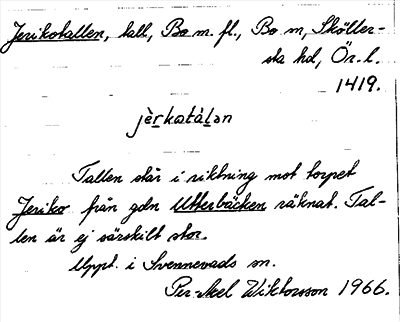 Jerikotallen, tall, Bo m. fl., Bo sn, Sköller-
sta hd, Ör. l.
1419.
jèrkatàlən
Tallen står i riktning mot torpet
Jeriko från gdn Utterbäcken räknat. Tal-
len är ej särskilt stor.
Uppt. i Svennevads sn.
Per-Axel Wiktorsson 1966.